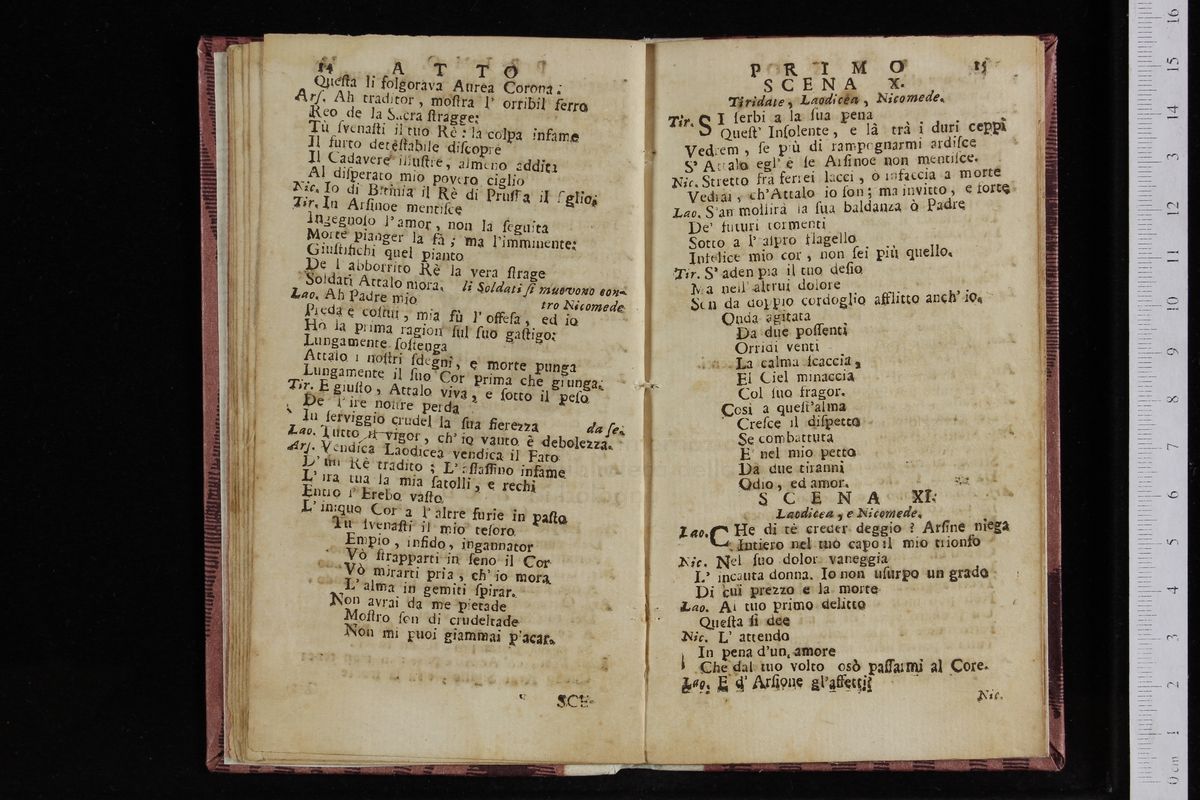 14 A T T O
Queſta li folgorava Aurea Corona.
Arſ. Ah traditor, moſtra l' orribil ferro
Reo de la Sacra ſtragge:
Tù ſvenaſti il tuo Rè: la colpa infame
Il furto deteſtabile diſcopre
Il Cadavere illuſtre, almeno additi
Al diſperato mio povero ciglio
Nic. Io di Bitinia il Rè di Pruſſa il figlio.
Tir. In Arſinoe mentiſce
Ingegnoſo l'amor, non la ſeguita
Morte pianger la fà; ma l'imminente:
Giuſtifichi quel pianto
De l abborrito Rè la vera ſtrage
Soldati Attalo mora. li Soldati ſi muovono con-
Lao. Ah Padre mio tro Nicomede
Pieda è coſtui, mia fù l'offeſa, ed io
Ho la prima ragion ſul ſuo gaſtigo:
Lungamente ſoſtenga
Attalo i noſtri ſdegni, e morte punga
Lungamente il ſuo Cor prima che giunga.
Tir. E giuſto, Attalo viva, e ſotto il peſo
De l'ire noſtre perda
In ſerviggio crudel la ſua fierezza da ſe.
Lao. Tutto il vigor, ch'io vanto è debolezza.
Arſ. Vendica Laodicea vendica il Fato
L' un Rè tradito; L'aſſaſſino infame
L' ira tua la mia ſatolli, e rechi
Entro l'Erebo vaſto
L' iniquo Cor a l'altre furie in paſto
Tu ſvenaſti il mio teſoro
Empio, infido, ingannator
Vò ſtrapparti in ſeno il Cor
Vò mirarti pria, ch'io mora
L' alma in gemiti ſpirar.
Non avrai da me pietade
Moſtro ſen di crudeltade
Non mi puoi giammai p'acar.
SCE-
P R I M O 15
S C E N A X.
Tiridate, Laodicea, Nicomede.
Tir. SI ſerbi a la ſua pena
Queſt' Inſolente, e là trà i duri ceppi
Vedrem, ſe più di rampognarmi ardiſce
S' Attalo egl' è ſe Arſinoe non mentiſce.
Nic. Stretto fra ferrei lacci, ò infaccia a morte
Vedrai, ch'Attalo io ſon; ma invitto, e forte
Lao. S'an mollirà la ſua baldanza ò Padre
De' futuri tormenti
Sotto a l'aſpro flagello
Infelice mio cor, non ſei più quello.
Tir. S' adempia il tuo deſio
Ma nell' altrui dolore
Sen da doppio cordoglio afflitto anch' io.
Onda agitata
Da due poſſenti
Orridi venti
La calma ſcaccia,
El Ciel minaccia
Col ſuo fragor.
Cosi a queſt'alma
Creſce il diſpetto
Se combattuta
E' nel mio petto
Da due tiranni
Odio, ed amor.
S C E N A XI.
Laodicea, e Nicomede.
Lao. CHe di tè creder deggio? Arſine niega
Intiero nel tuo capo il mio trionfo
Nic. Nel ſuo dolor vaneggia
L' incauta donna. Io non uſurpo un grado
Di cui prezzo e la morte
Lao. Al tuo primo delitto
Queſta ſi dee
Nic. L' attendo
In pena d'un, amore
Che dal tuo volto osò paſſarmi al Core.
Lao. E d' Arſione gl'affetti?
Nic.